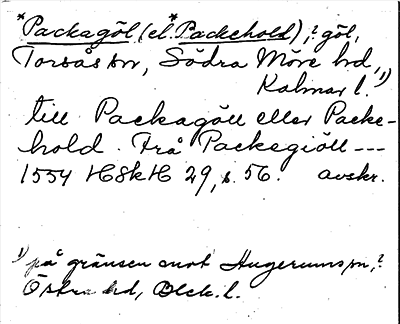 *Packagöl (el. *Packehold),? göl,
Torsås sn, Södra Möre hd,
Kalmar l. 1)
till Packagöll eller Packe-
hold. Frå Packegiöll ---
1554 HSkH 29, s. 56. avskr.
1) på gränsen mot Hugerums sn,?
Östra hd, Blek. l.